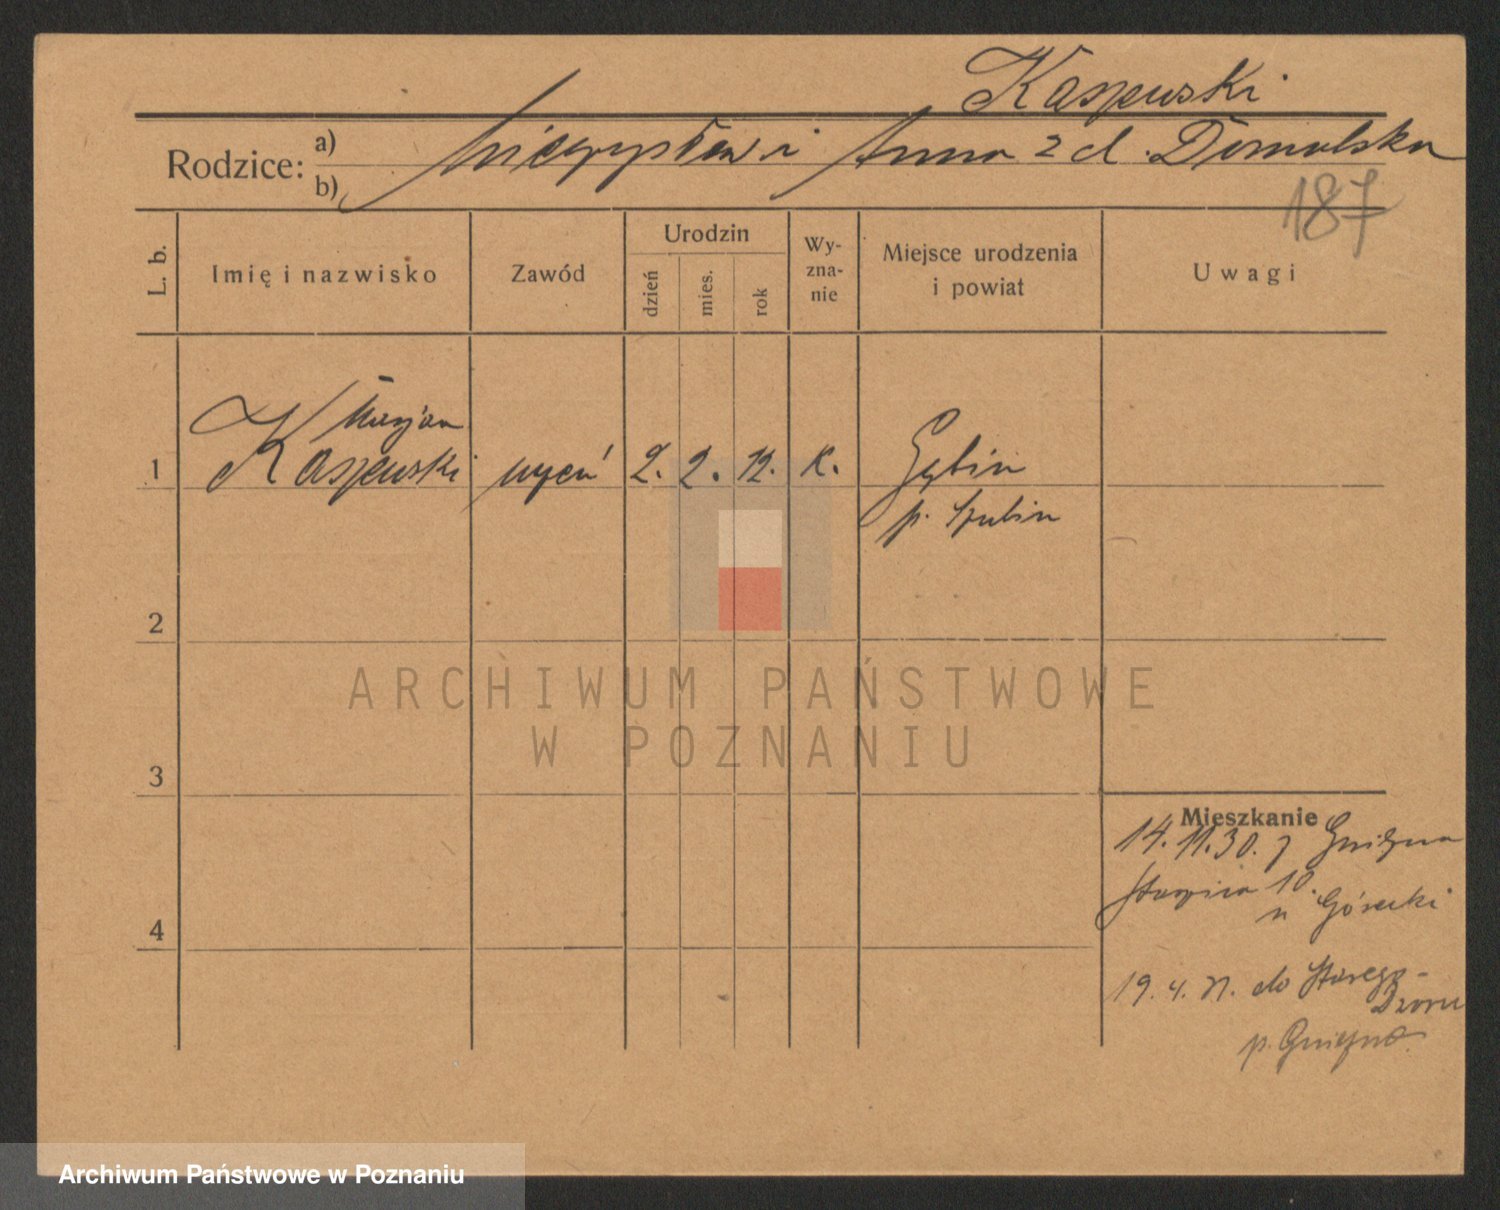 Kaszewski
Rodzice: a) b) Mieczysław i Anna z d. Domalska
187
L. b.
Imię i nazwisko
Zawód
Urodzin
dzień
mies.
rok
Wy-
zna-
nie
Miejsce urodzenia
i powiat
Uwagi
Marjan
1 Kaszewski uczeń 2. 2. 12. k. Gąbin
p. Szubin
2
3
4
ARCHIWUM PAŃSTWOWE
W POZNANIU
Mieszkanie
14.11.30. z Gniezna
10.
u Górecki
19.4.31. do Starego-
Dworu
p. Gniezno.
Archiwum Państwowe w Poznaniu